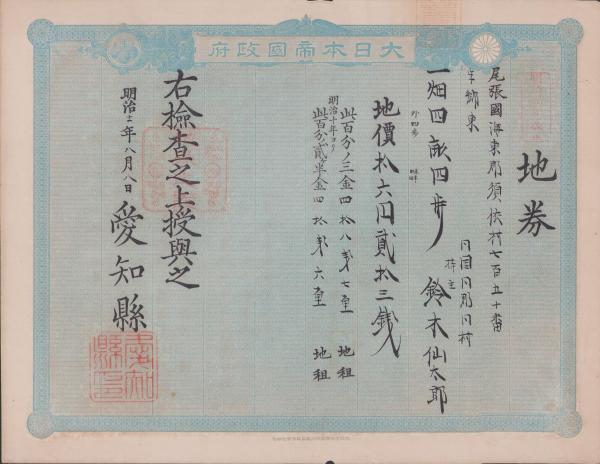 大日本帝國政府
地券
尾張國海東郡須依村七百五十番
字郷東
一畑四畝四歩
外四歩 畦畔
同国同郡同村
持主 鈴木仙太郎
地價拾六円貳拾三銭
此百分ノ三金四拾八銭七厘 地租
明治十年ヨリ
此百分ノ貳ケ半金四拾銭六厘 地租
右撿査之上授與之
明治十二年八月八日
愛知縣
愛知縣印